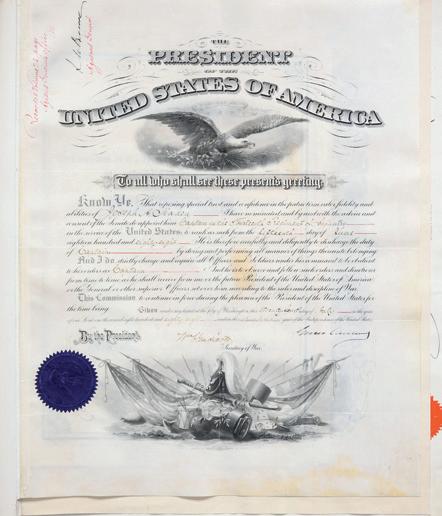 THE
PRESIDENT
OF THE
UNITED STATES OF AMERICA
To all who shall see these presents greeting:
Know Ye, That reposing special trust and confidence in the patriotism, valor, fidelity and
abilities of Joseph H. I have nominated and by and with the advice and
consent of the Senate do appoint him Captain in the Regiment of
in the service of the United States: to rank as such from the fifteenth day of June
eighteen hundred and eighty eight He is therefore carefully and diligently to discharge the duty
of Captain by doing and performing all manner of things thereunto belonging.
And I do strictly charge and require all Officers and Soldiers under his command to be obedient
to his orders as Captain And he is to observe and follow such orders and directions
from time to time as he shall receive from me or the future President of the United States of America
or the General or other superior Officers set over him according to the rules and discipline of War.
This Commission to continue in force during the pleasure of the President of the United States for
the time being.
Given under my hand at the City of Washington, this day of July in the year
of our Lord one thousand eight hundred and eighty of the United States
By the President,
Grover Cleveland
Secretary of War.